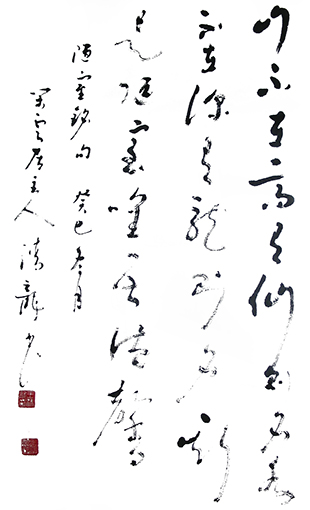 山不在高有仙则名水
不在深有龍则灵斯
是陋室唯吾德馨
陋室銘句 癸巳冬月
雲居主人 龍 书